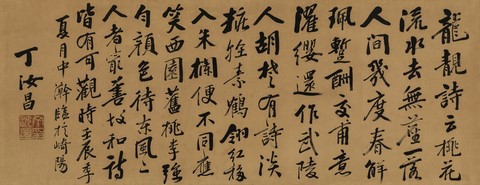 龍靚詩云桃花
流水本無塵一落
人間幾度春解
珮暫酬交甫意
濯纓還作武陵
人胡楚有詩淡
粧輕素鶴翎紅移
入朱欄便不同應
笑西園舊桃李強
勻顏色待東風二
人者最善和詩
皆有可觀時壬辰季
夏月中澣臨於崎陽
丁汝昌